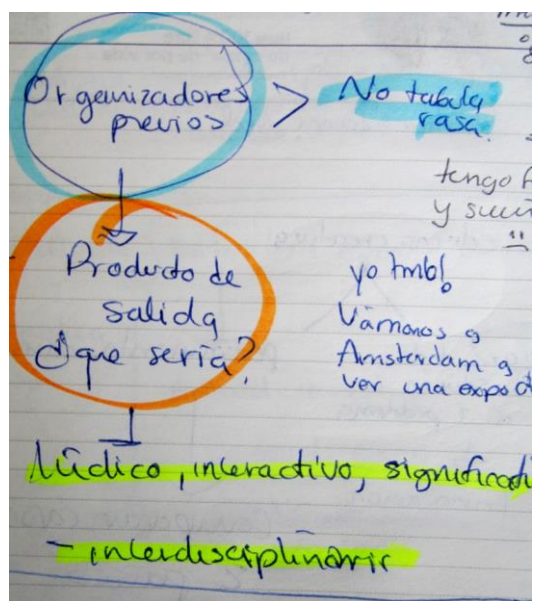 Organizadores
previos
> No tabula
rasa.
tengo
y
Producto de
salida
¿que sería?
yo tmb!
Vámonos a
Amsterdam a
ver una expo
Lúdico, interactivo, significati
- interdisciplinario